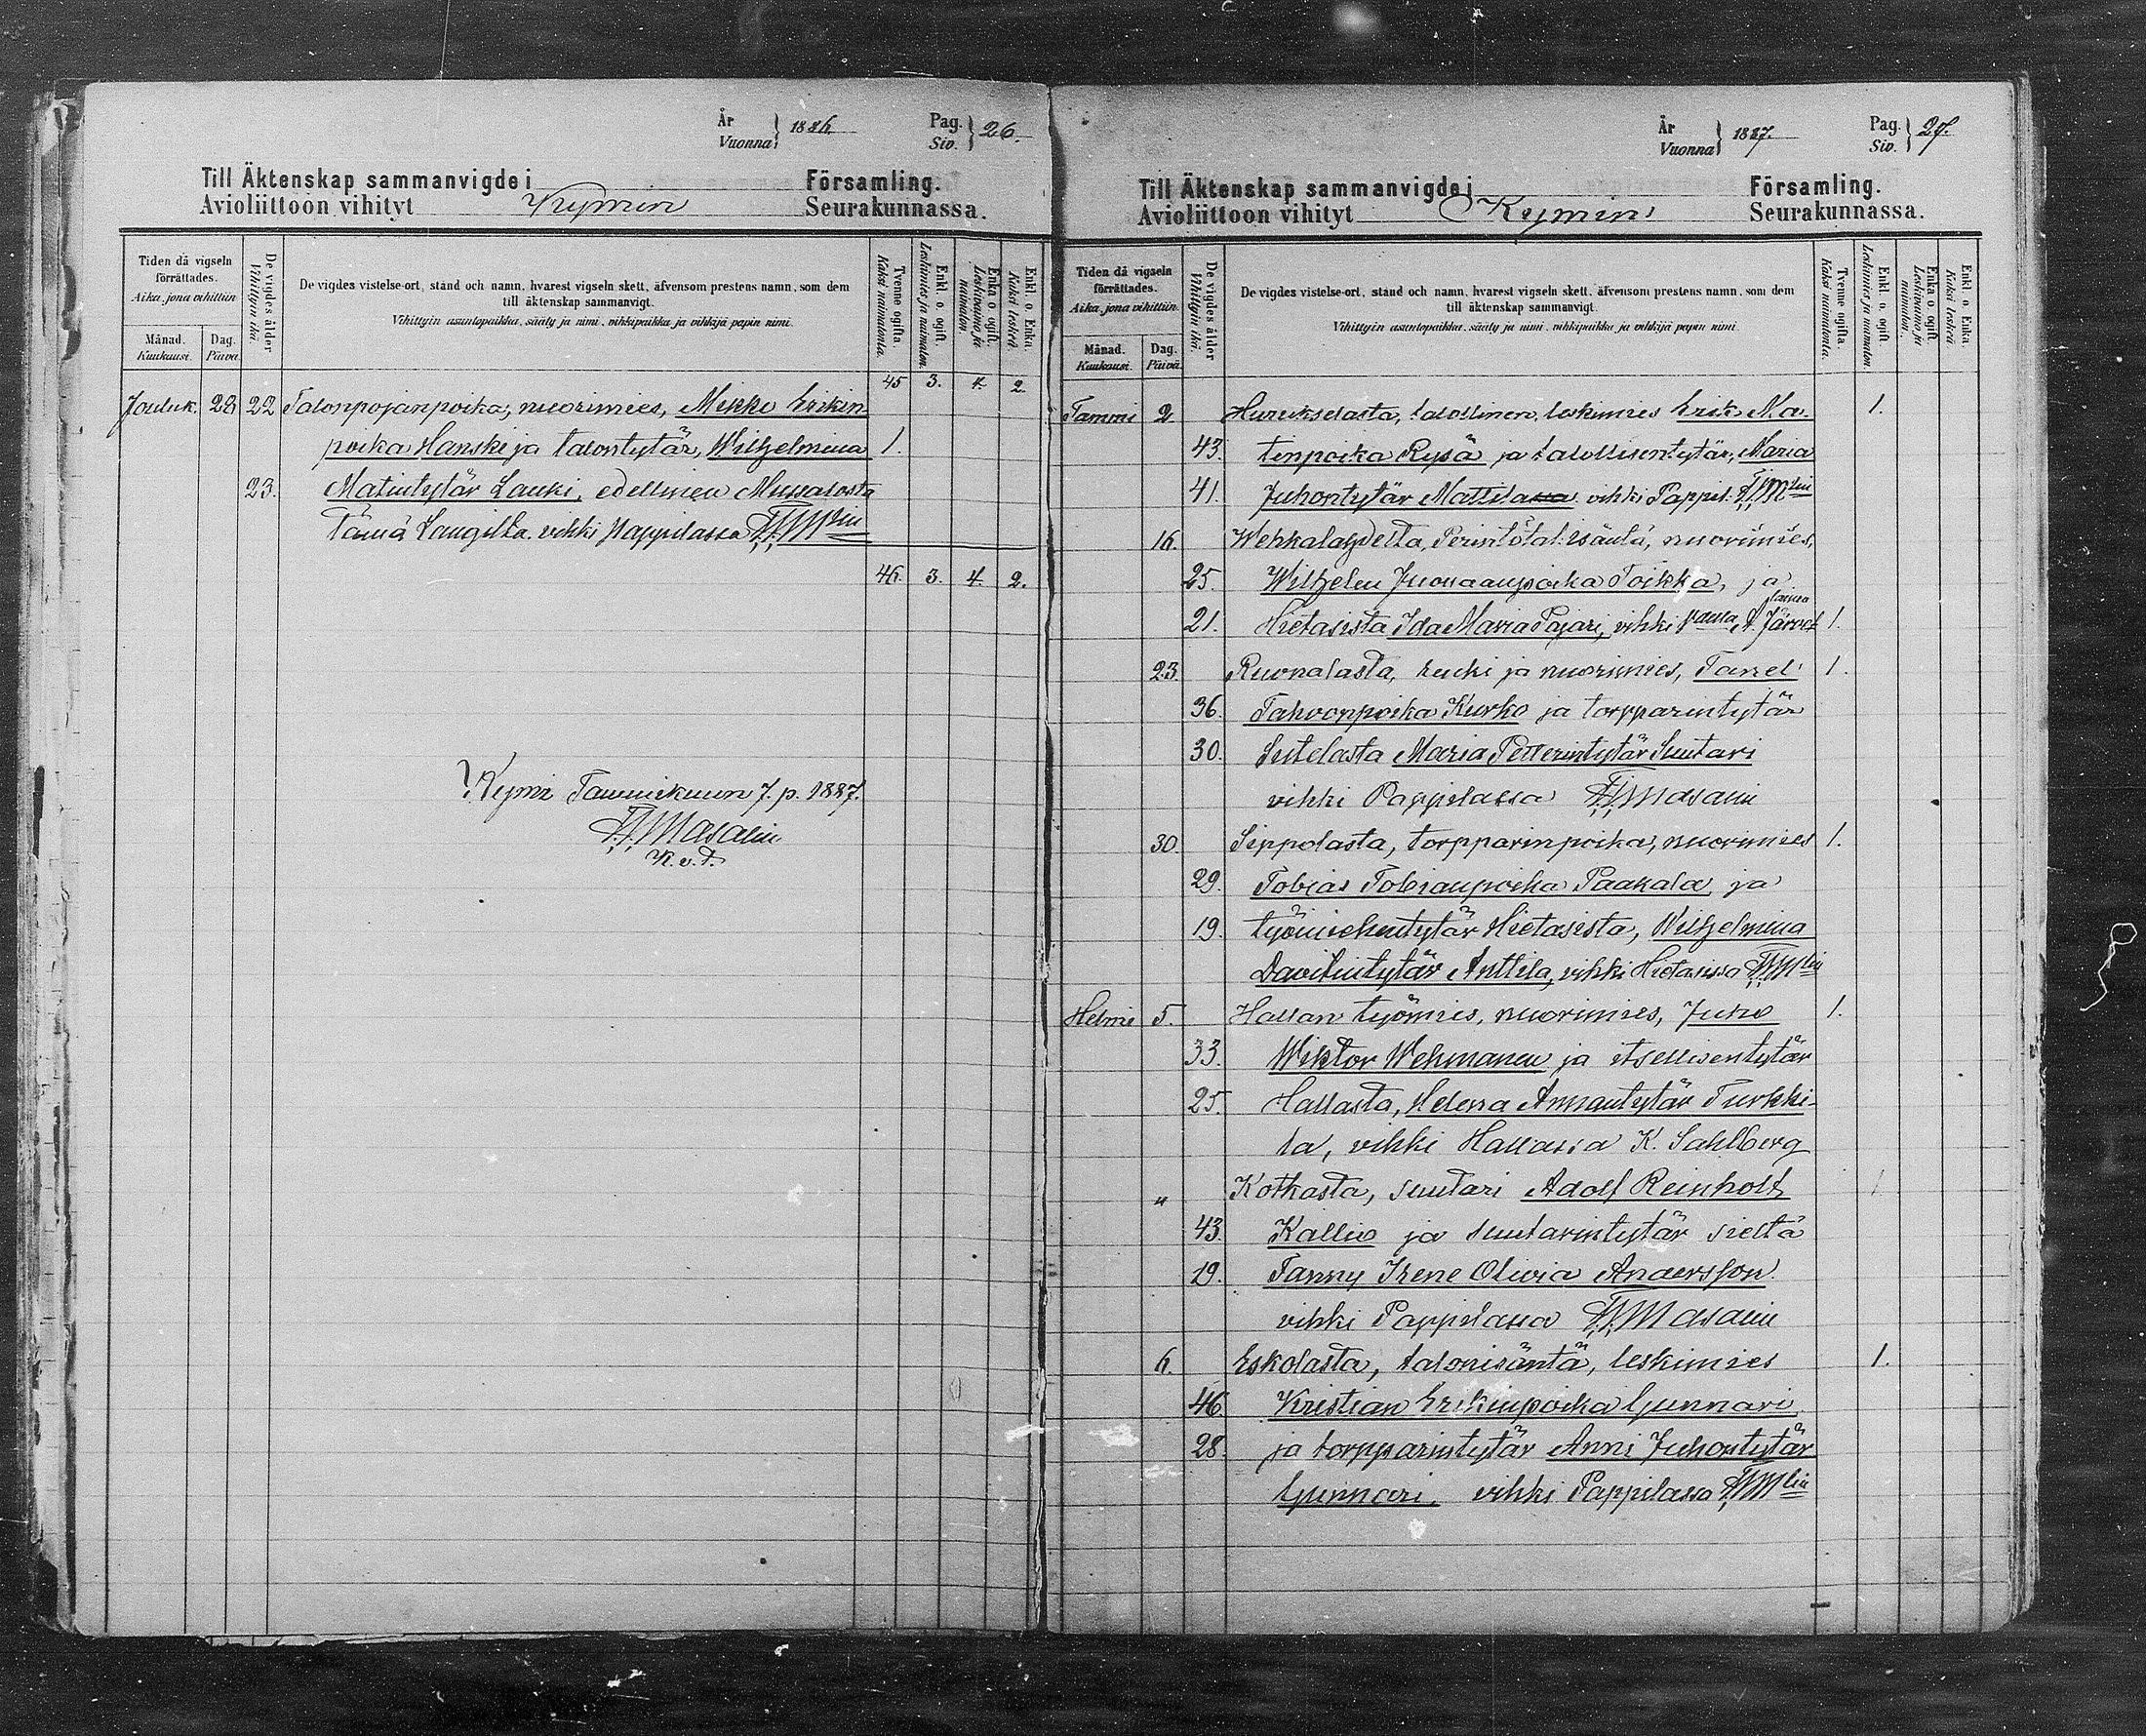 År Vuonna } 1886. Pag. Siv. } 26.
Till Äktenskap sammanvigde i Församling.
Avioliittoon vihityt Kymin Seurakunnassa.
Tiden då vigseln förrättades.
Aika, jona vihittiin
Månad. Kuukausi.
Dag. Päivä.
De vigdes ålder
Vihittyin ikä.
De vigdes vistelse-ort, stånd och namn, hvarest vigseln skett, äfvensom prestens namn, som dem
till äktenskap sammanvigt.
Vihittyin asuntopaikka, sääty ja nimi, vihkipaikka ja vihkijä papin nimi.
Tvenne ogifta. Kaksi naimatonta.
Enkl. o. ogift. Leskimies ja naimaton.
Enka o ogift. Leskivaimo ja naimaton.
Enkl. o. Enka. Kaksi leskeä.
45 3. 4. 2.
Jouluk. 28 22 Talonpojanpoika, nuorimies, Mikko Erikin
poika Hanski ja talontytär, Wilhelmina 1.
23. Matintytär Lauki, edellinen Mussalosta
Tämä Langilta. vihki Pappilassa
46. 3. 4. 2.
Kymi Tammikuun 7. p. 1887.
Masalin
K. v. t.
År Vuonna } 1887. Pag. Siv. } 27.
Till Äktenskap sammanvigde i Församling.
Avioliittoon vihityt Kymin Seurakunnassa.
Tiden då vigseln förrättades.
Aika, jona vihittiin
Månad. Kuukausi.
Dag. Päivä.
De vigdes ålder
Vihittyin ikä.
De vigdes vistelse-ort, stånd och namn, hvarest vigseln skett, äfvensom prestens namn, som dem
till äktenskap sammanvigt.
Vihittyin asuntopaikka, sääty ja nimi, vihkipaikka ja vihkijä papin nimi.
Tvenne ogifta. Kaksi naimatonta.
Enkl. o. ogift. Leskimies ja naimaton.
Enka o ogift. Leskivaimo ja naimaton.
Enkl. o. Enka. Kaksi leskeä.
Tammi 2. Hurukselasta, talollinen, leskimies Erik Ma- 1.
43. tinpoika Rysä ja talollisentytär, Maria
41. Juhontytär Mattila vihki Pappil.
16. Wehkalahdelta, Perintötal. isäntä, nuorimies,
25. Wilhelm Juonaanpoika Toikka, ja
21. Hietasista Ida Maria Pajari, vihki 1.
23. Ruonalasta, renki ja nuorimies, Taneli 1.
36. Tahvonpoika Kurko ja torpparintytär
30. Sutelasta Maria Petterintytär Suutari
vihki Pappilassa Masalin
30. Sippolasta, torpparinpoika, nuorimies 1.
29. Tobias Tobiaanpoika Paakala, ja
19. työmiehentytär Hietasista, Wilhelmina
Davitintytär Anttila, vihki Hietasissa
Helmi 5. Hallan työmies, nuorimies, Juho 1.
33. Wiktor Wehmanen ja itsellisentytär
25. Hallasta, Helena Annantytär Turkki-
la, vihki Hallassa K. Sahlberg
" Kotkasta, suutari Adolf Reinholt 1
43. Kallio ja suutarintytär sieltä
19. Fanny Irene Olivia Andersson
vihki Pappilassa Masalin
6. Eskolasta, talonisäntä, leskimies 1.
46. Kristian Erikinpoika Gunnari,
28. ja torpparintytär Anni Juhontytär
Gunnari, vihki Pappilassa